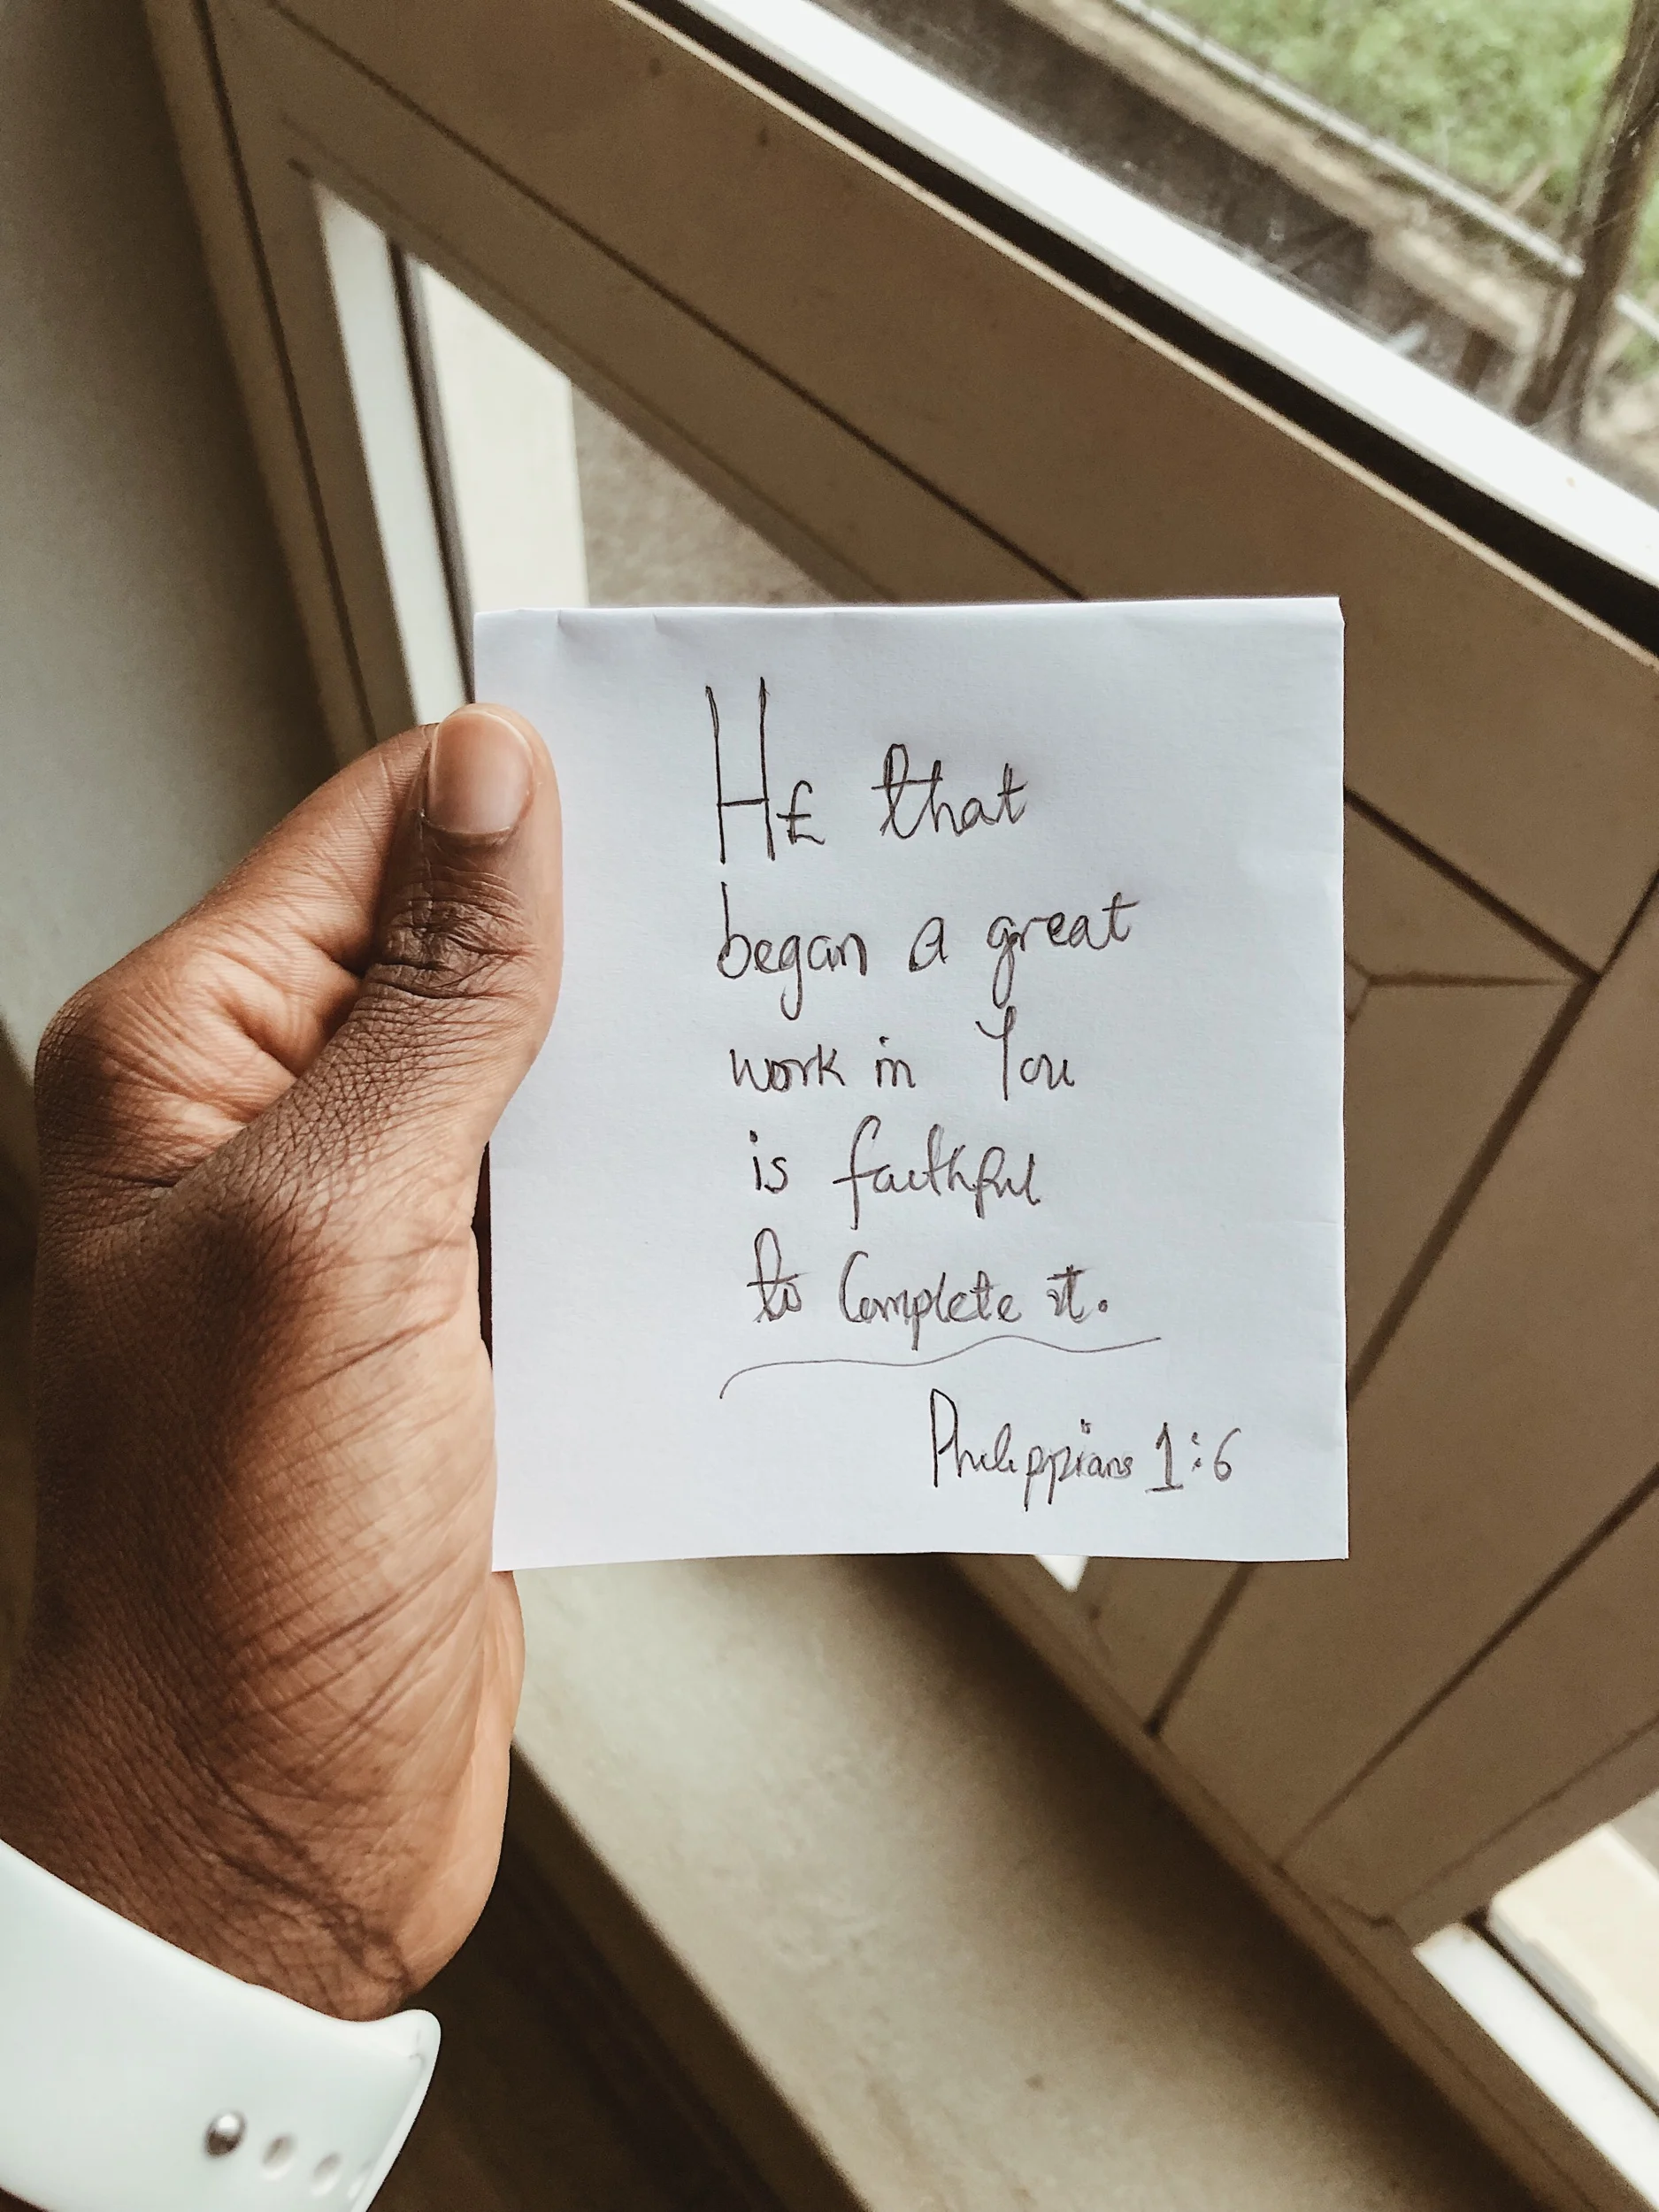 HE that
began a great
work in You
is faithful
to Complete it.
Philippians 1:6